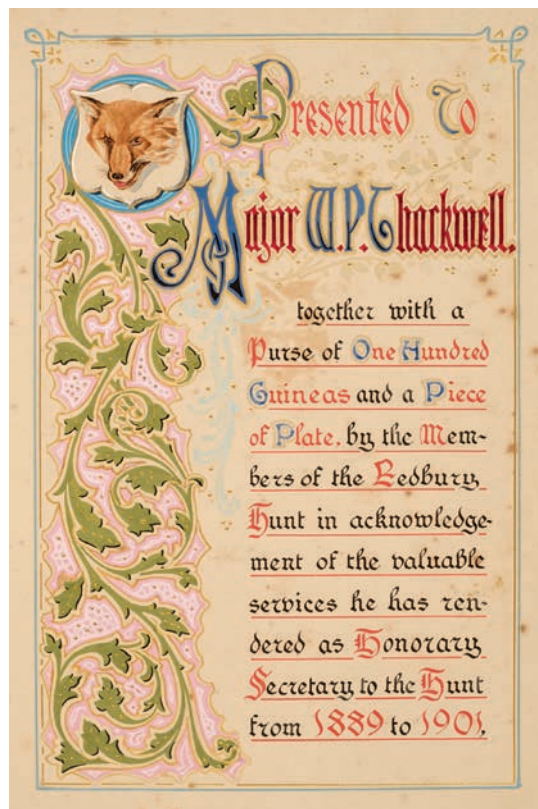 Presented To
Major W.P. Thackwell.
together with a
Purse of One Hundred
Guineas and a Piece
of Plate, by the Mem-
bers of the Ledbury
Hunt in acknowledge-
ment of the valuable
services he has ren-
dered as Honorary
Secretary to the Hunt
from 1889 to 1901.